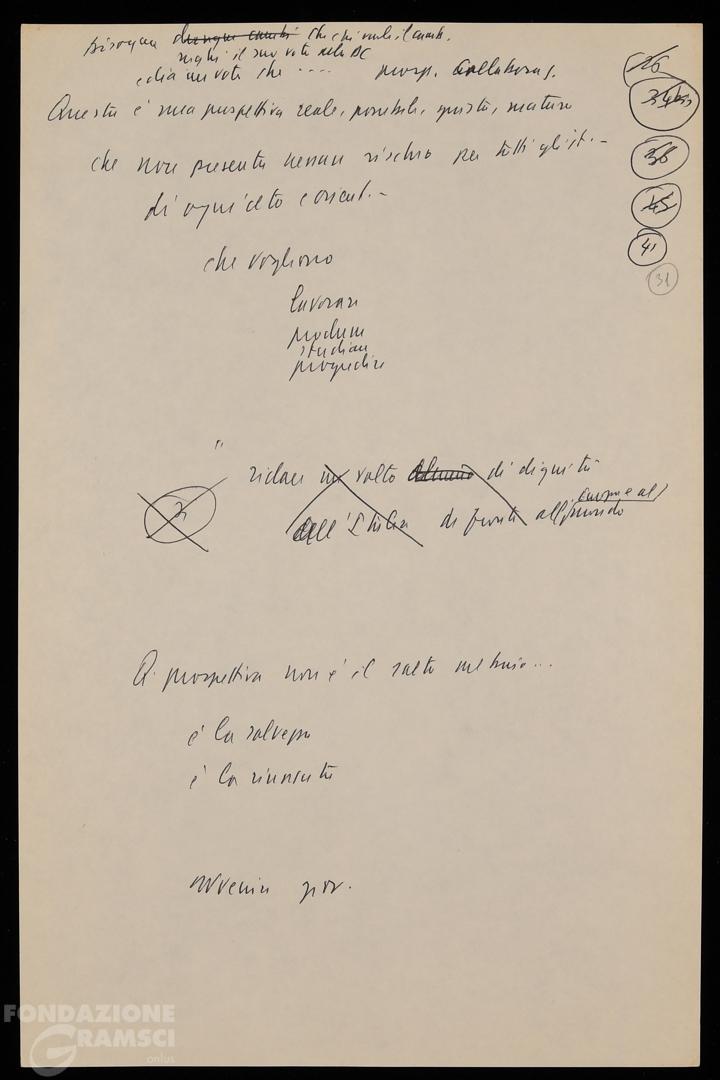 Bisogna che chi vuole il camb.
neghi il suo voto alla DC
e dia un voto che .... prosp. collaboraz.
Questa è una prospettiva reale, possibile, giusta, matura
che non presenta nessun rischio per tutti gli it.-
di ogni ceto e orient.-
che vogliono
lavorare
produrre
studiare
progredire
26
34bis
36
45
41
31
"
ridare un volto di dignità
dell'Italia di fronte all'Europa e al mondo
Q. prospettiva non è il salto nel buio...
è la salvezza
è la rinascita
avvenire giov.
FONDAZIONE
GRAMSCI
onlus